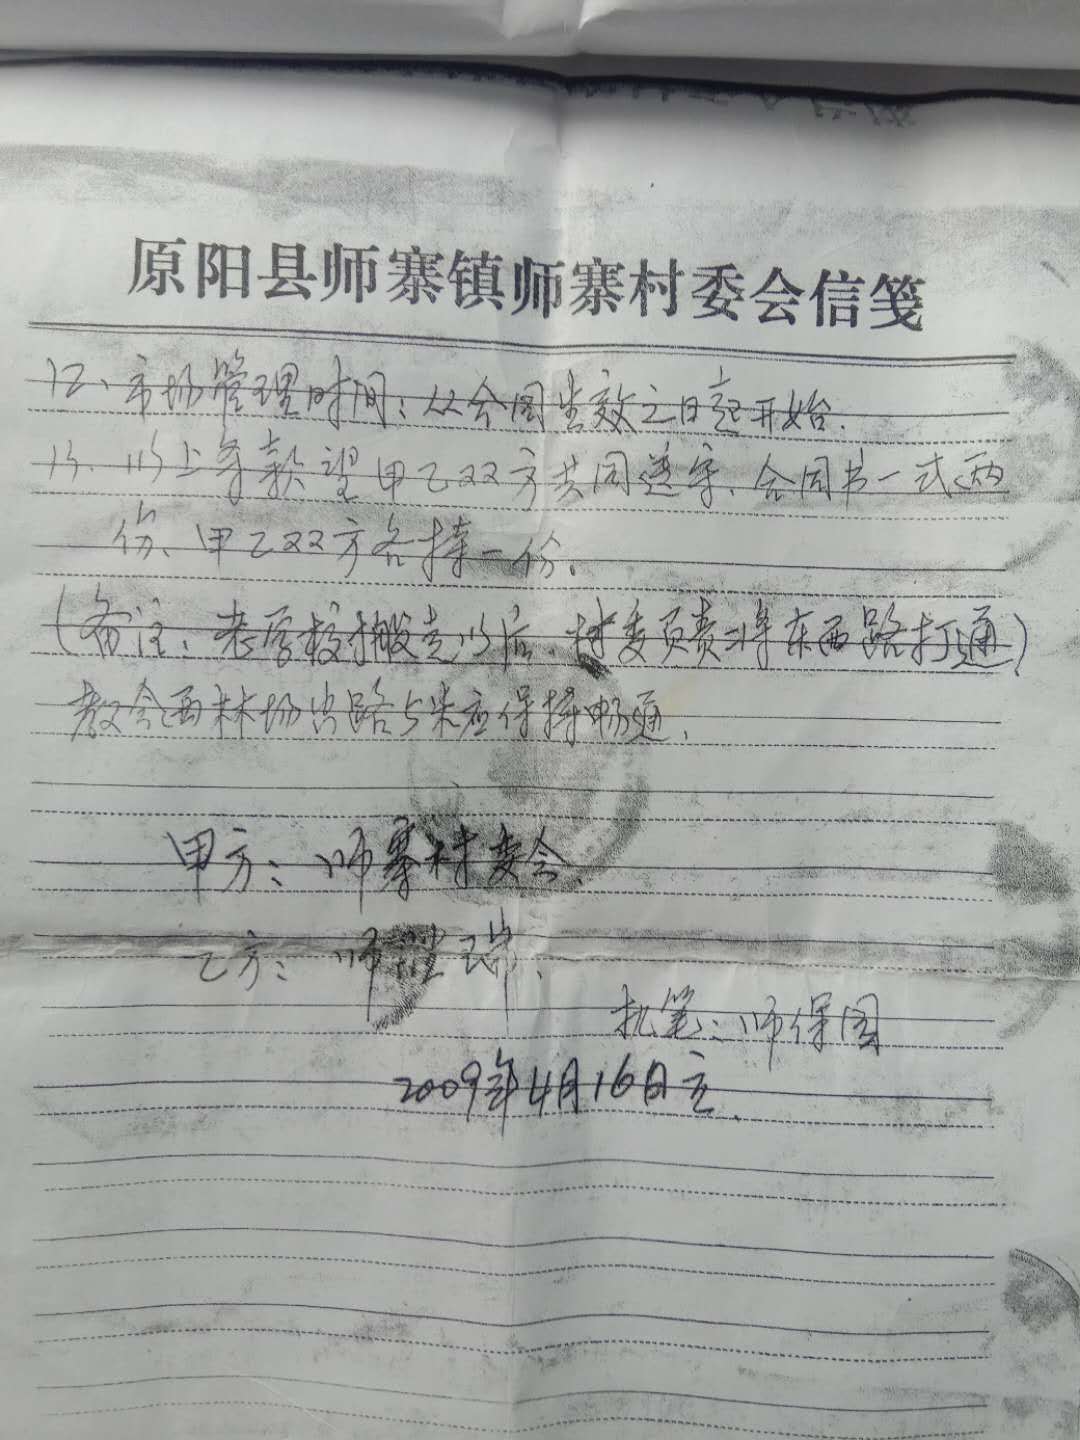 原阳县师寨镇师寨村委会信笺
12、市场管理时间：从合同生效之日起开始.
13、以上条款望甲乙双方共同遵守、合同书一式两
份、甲乙双方各持一份.
(备注：老学校搬走以后、村委负责将东西路打通)
教会西林场出路 应保持畅通.
甲方：师寨村委会.
乙方：师 瑞.
执笔：师保国
2009年4月16日立.